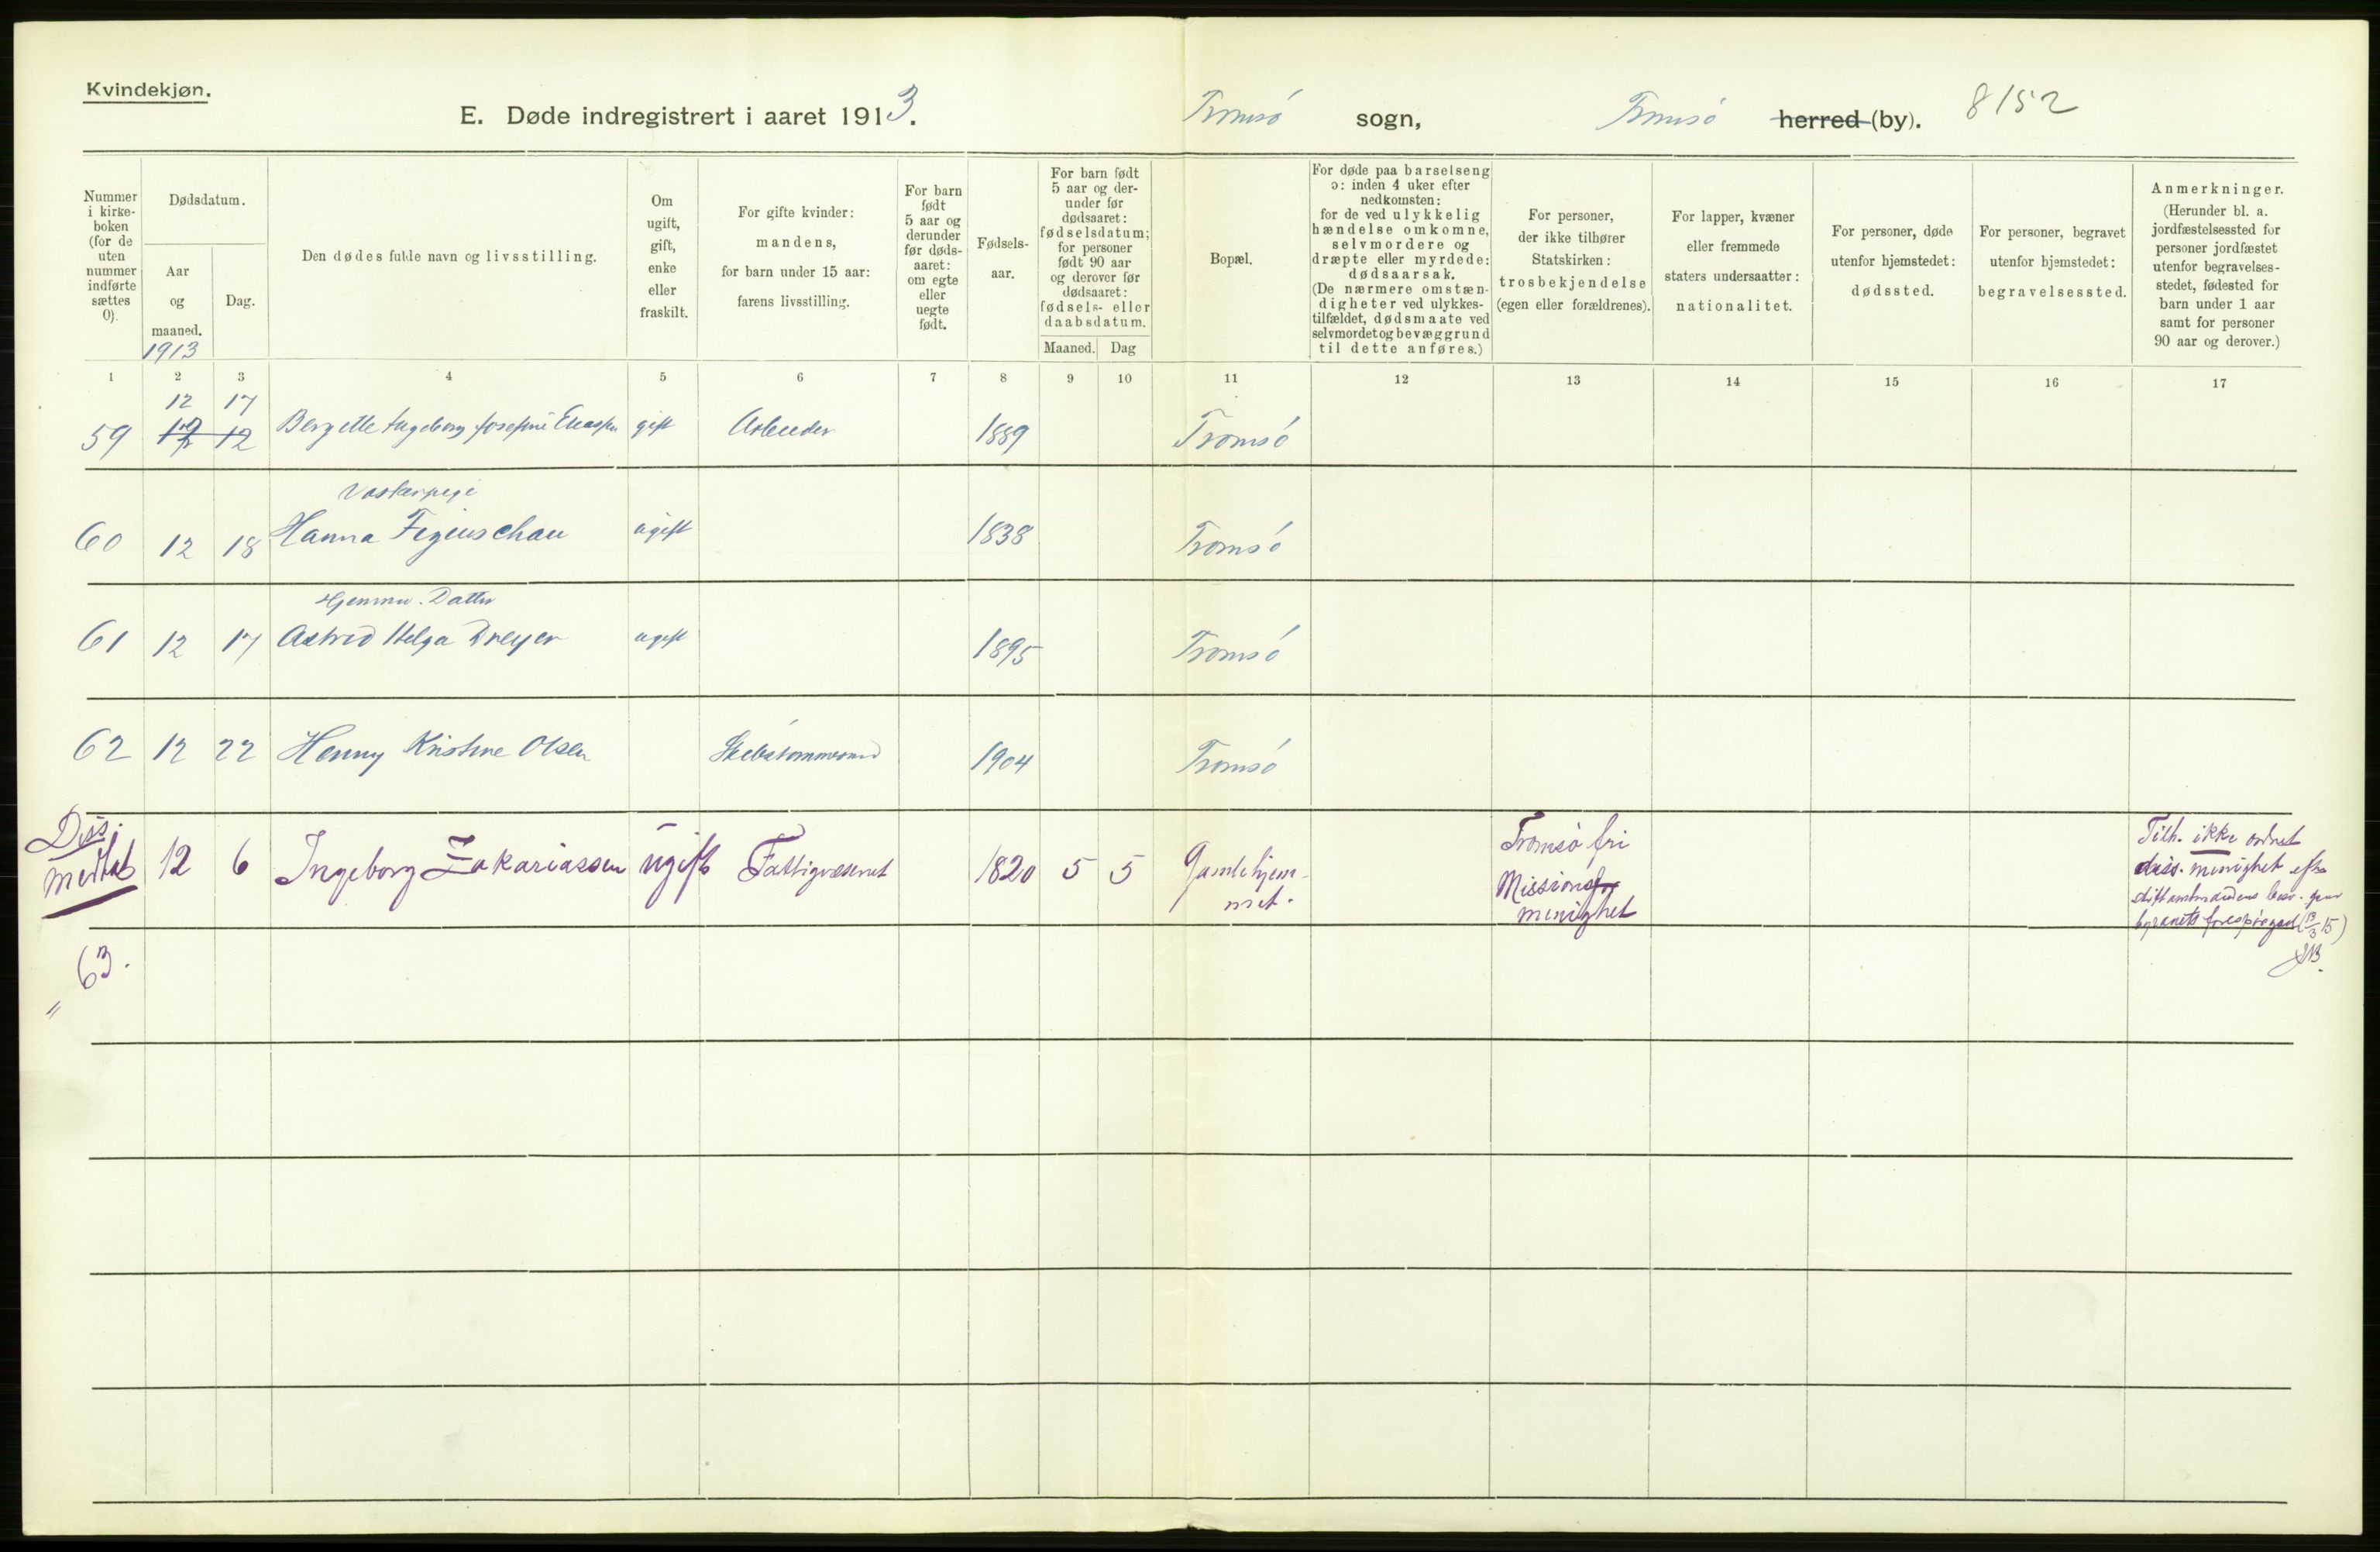 Kvindekjøn.
E. Døde indregistrert i aaret 1913. Tromsö sogn, Tromsö herred (by). 8152
Nummer i kirkeboken (for de uten nummer indførte sættes 0).
Dødsdatum.
Aar og maaned.
1913
Dag.
Den dødes fulde navn og livsstilling.
Om ugift, gift, enke eller fraskilt.
For gifte kvinder: mandens, for barn under 15 aar: farens livsstilling.
For barn født 5 aar og derunder før dødsaaret: om egte eller uegte født.
Fødselsaar.
For barn født 5 aar og derunder før dødsaaret: fødselsdatum; for personer født 90 aar og derover før dødsaaret: fødsels- eller daabsdatum.
Maaned. Dag
Bopæl.
For døde paa barselseng ɔ: inden 4 uker efter nedkomsten: for de ved ulykkelig hændelse omkomne, selvmordere og dræpte eller myrdede: dødsaarsak. (De nærmere omstændigheter ved ulykkestilfældet, dødsmaate ved selvmordet og bevæggrund til dette anføres.)
For personer, der ikke tilhører Statskirken: trosbekjendelse (egen eller forældrenes).
For lapper, kvæner eller fremmede staters undersaatter: nationalitet.
For personer, døde utenfor hjemstedet: dødssted.
For personer, begravet utenfor hjemstedet: begravelsessted.
Anmerkninger. (Herunder bl. a. jordfæstelsessted for personer jordfæstet utenfor begravelsesstedet, fødested for barn under 1 aar samt for personer 90 aar og derover.)
1 2 3 4 5 6 7 8 9 10 11 12 13 14 15 16 17
12 17
59 12 Bergette Ingeborg Josefine gift Arbeider 1889 Tromsö
60 12 18 Hanna Figenschau ugift 1838 Tromsö
Hjemmev. Datter
61 12 17 Astrid Helga Dreyer ugift 1895 Tromsö
62 12 22 Henny Kristine Olsen 1904 Tromsö
Diss.
12 6 Ingeborg Zakariassen ugift Fattigvæsenet 1820 5 5 Gamlehjemmet.
Tromsø fri
Missions
menighet
Tilh. ikke ordnet
diss. menighet efter
stiftamtmandens besv. paa
byraaets forespørgsel (13/3 15)
63.
"